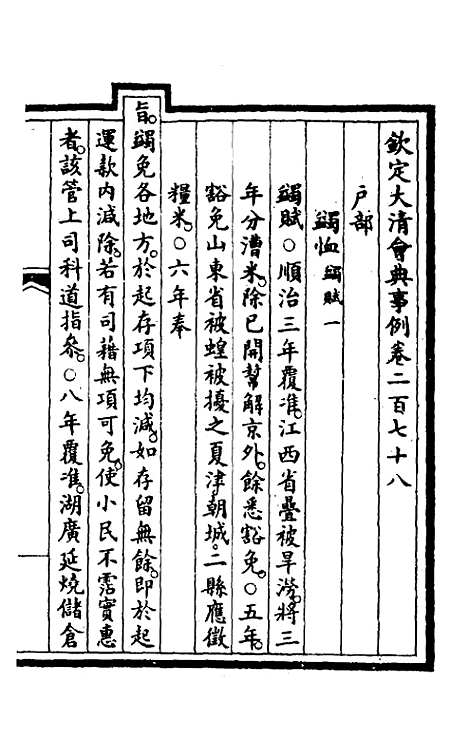 欽定大清會典事例卷二百七十八
戶部
蠲恤 蠲賦一
蠲賦○順治三年覆准。江西省疊被旱澇。將三
年分漕米。除已開幫解京外。餘悉豁免。○五年。
豁免山東省被蝗被擾之夏津朝城。二縣應徵
糧米。○六年奉
旨。蠲免各地方。於起存項下均減。如存留無餘。即於起
運款內減除。若有司藉無項可免。使小民不霑實惠
者。該管上司科道指參。○八年覆准。湖廣延燒儲倉